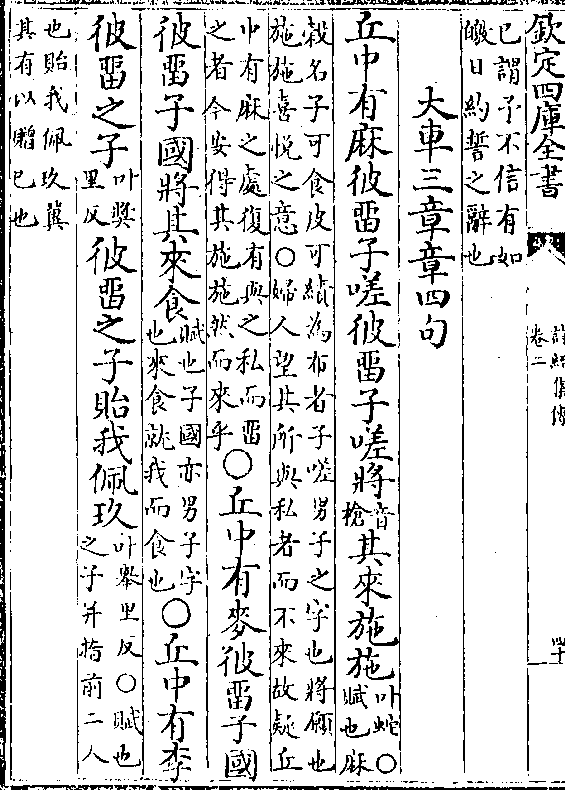 欽定四庫全書
詩經集傳
卷二
四十
已謂予不信有如
皦日約誓之辭也
大車三章章四句
丘中有麻彼畱子嗟彼畱子嗟將音槍其來施施叶蛇○賦也麻
穀名子可食皮可績為布者子嗟男子之字也將願也
施施喜悦之意○婦人望其所與私者而不來故疑丘
中有麻之處復有與之私而畱之者今安得其施施然而來乎○丘中有麥彼畱子國
彼畱子國將其來食賦也子國亦男子字也來食就我而食也○丘中有李
彼畱之子叶奬里反彼畱之子貽我佩玖叶舉里反○賦也之子并指前二人
也貽我佩玖冀
其有以贈已也